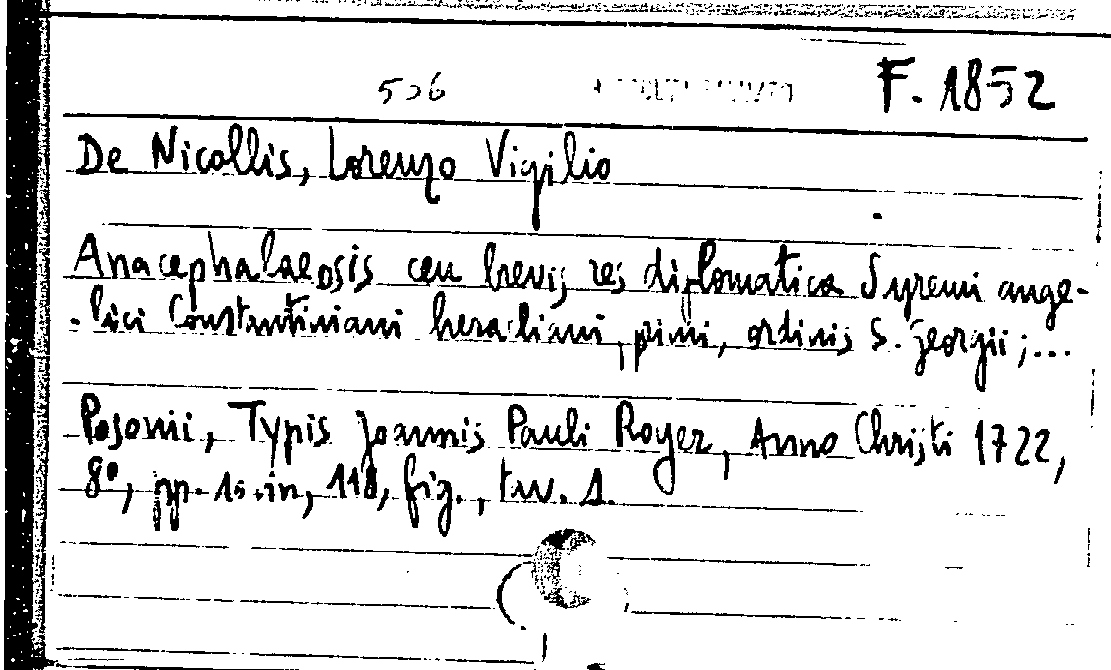 506 F. 1852
De Nicollis, Lorenzo Vigilio
Anacephalaeosis ceu brevis res diplomatica Syremi ange-
-lici Constantiniani heracliani, primi, ordinis S. Georgii;...
Posonii, Typis Joannis Pauli Royer, Anno Christi 1722,
8°, pp. 118, fig., tav. 1.